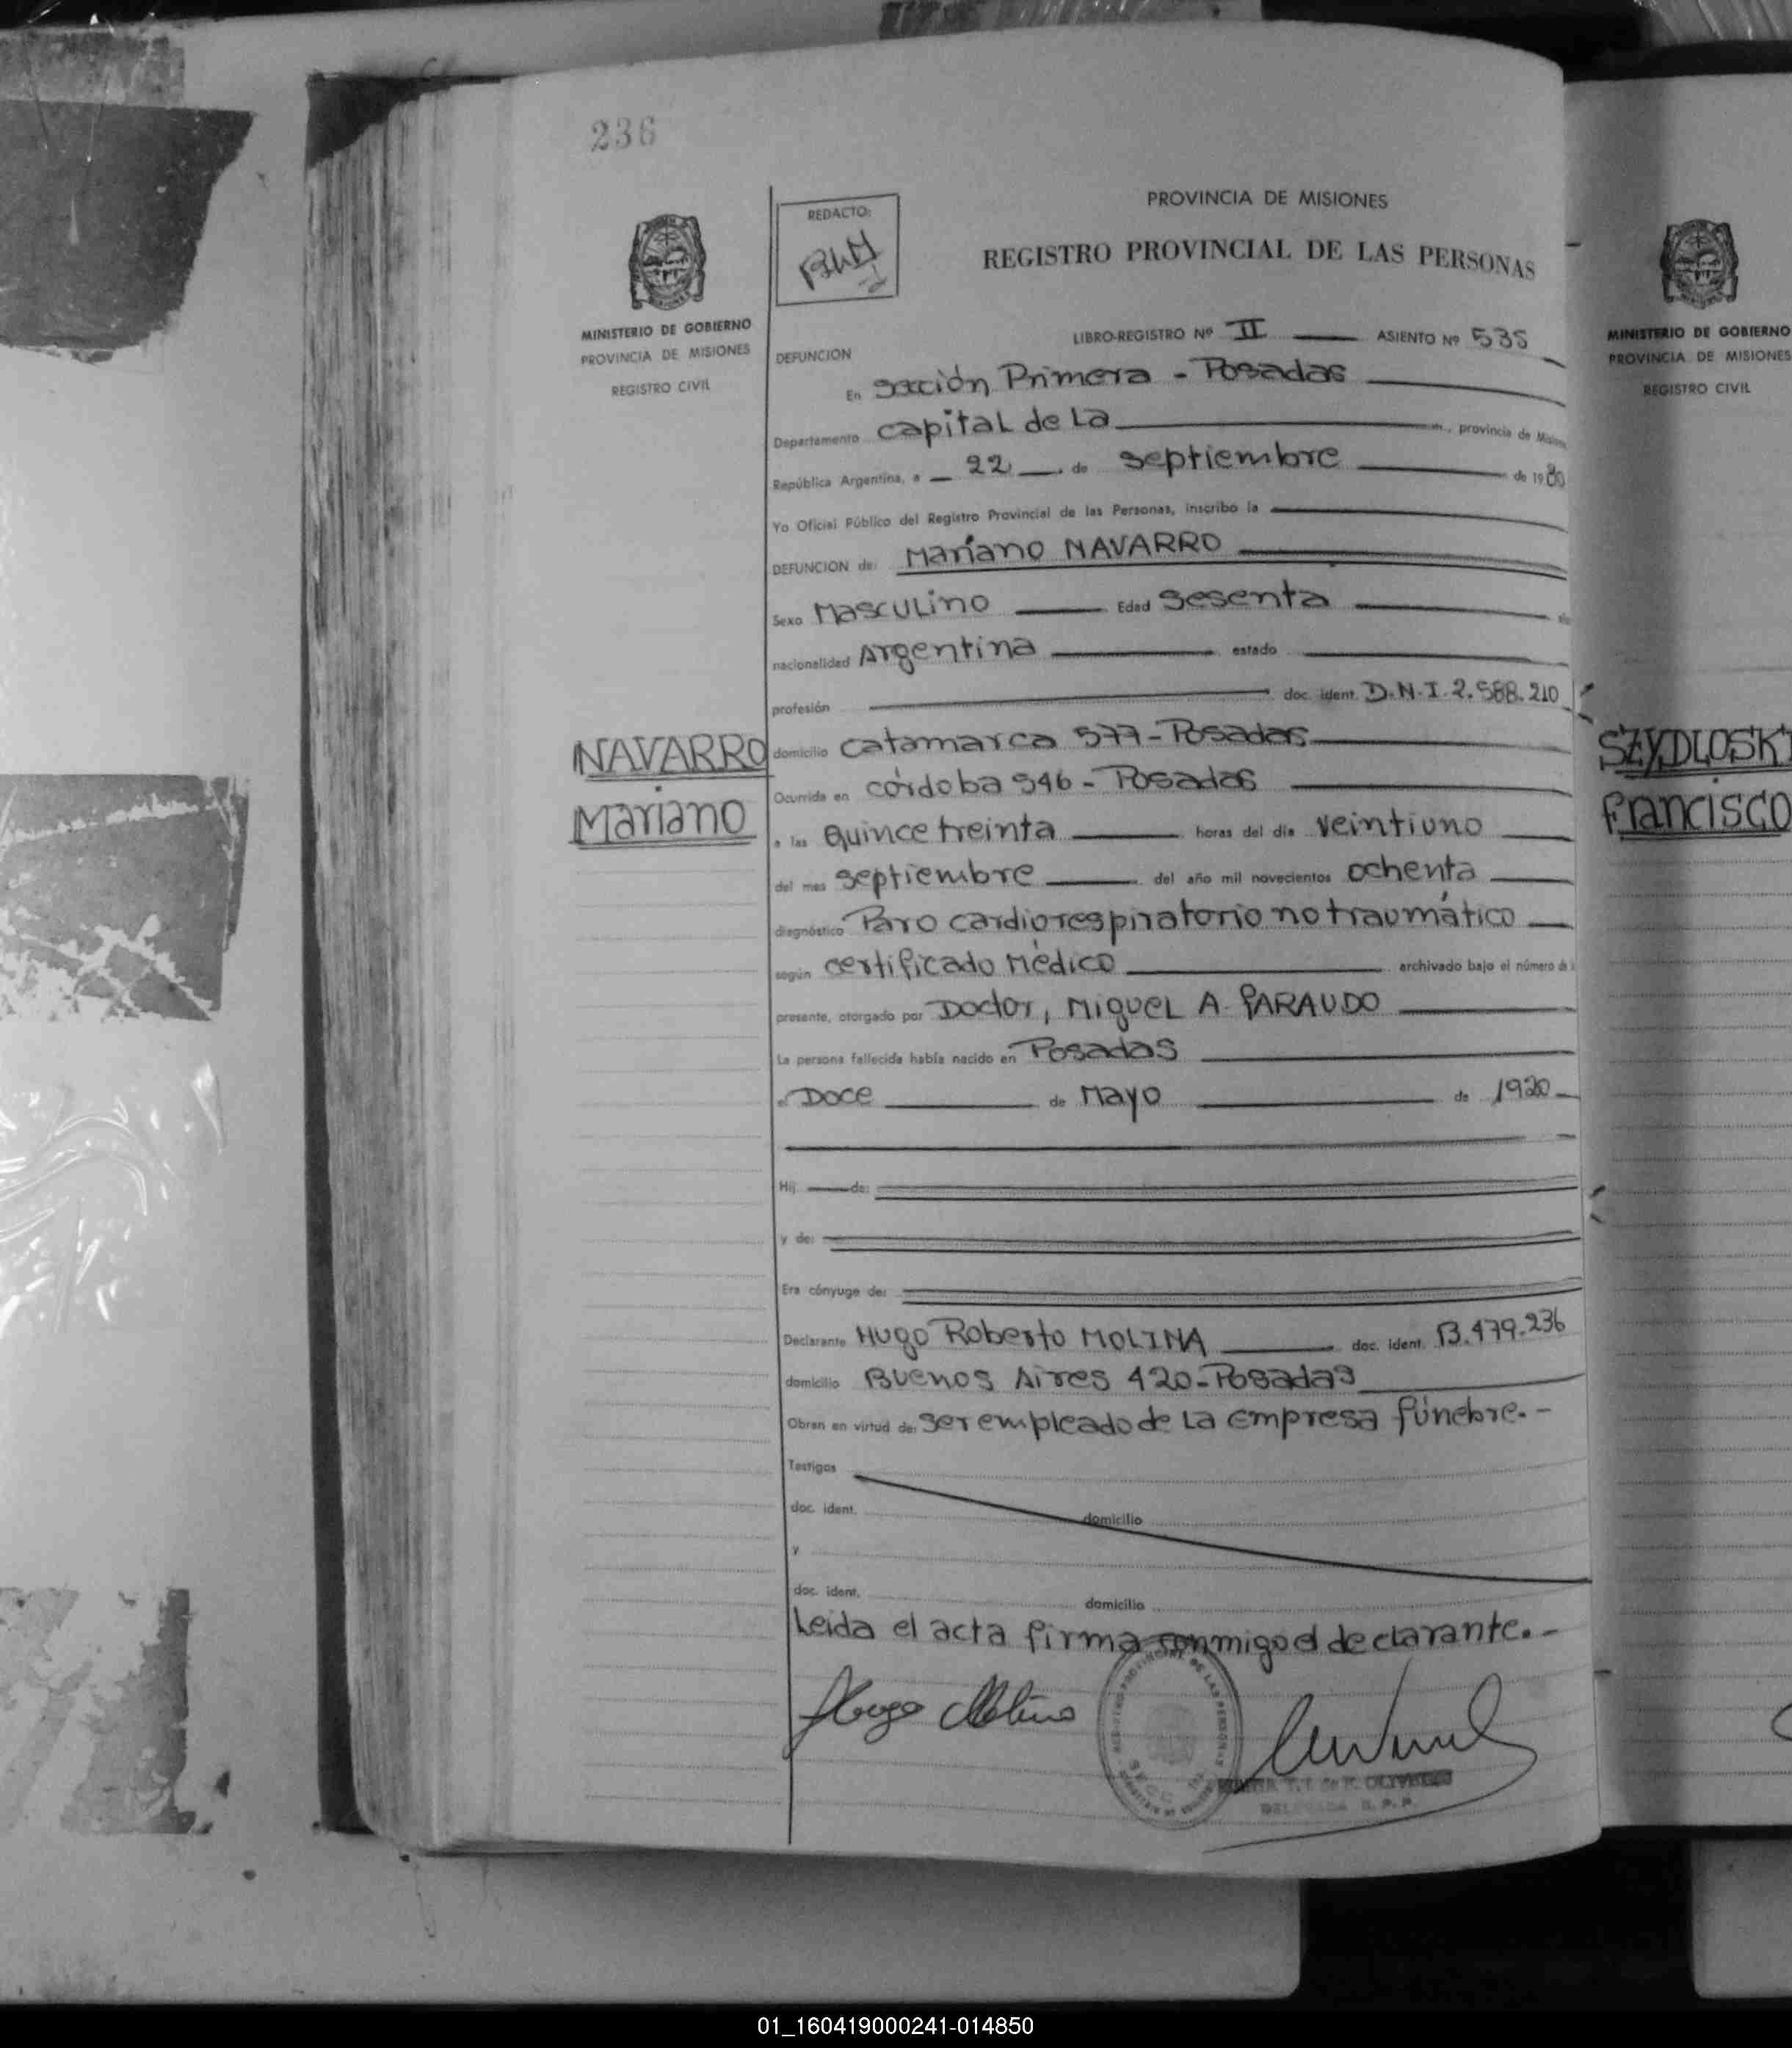 236
MINISTERIO DE GOBIERNO
PROVINCIA DE MISIONES
REGISTRO CIVIL
REDACTO:
PROVINCIA DE MISIONES
REGISTRO PROVINCIAL DE LAS PERSONAS
LIBRO-REGISTRO Nº II ASIENTO Nº 535
DEFUNCION
En Sección Primera - Posadas
Departamento Capital de La, provincia de Misiones
República Argentina, a 22 de septiembre de 1980
Yo Oficial Público del Registro Provincial de las Personas, inscribo la
DEFUNCION de: Mariano NAVARRO
Sexo Masculino Edad Sesenta
nacionalidad Argentina estado
profesión doc. ident. D.N.I. 2.588.210
NAVARRO
Mariano
domicilio Catamarca 577 - Posadas
Ocurrida en Córdoba 546 - Posadas
a las Quince treinta horas del día veintiuno
del mes septiembre del año mil novecientos ochenta
diagnóstico Paro cardiorespiratorio no traumático
según certificado Médico archivado bajo el número de
presente, otorgado por Doctor, Miguel A. PARAUDO
La persona fallecida había nacido en Posadas
el Doce de Mayo de 1920
Hij de:
y de:
Era cónyuge de:
Declarante Hugo Roberto MOLINA doc. ident. 13.479.236
domicilio Buenos Aires 420 - Posadas
Obran en virtud de: ser empleado de la empresa fúnebre. -
Testigos
doc. ident. domicilio
y
doc. ident. domicilio
Leida el acta firma conmigo el declarante. -
Hugo Molina
MINISTERIO DE GOBIERNO
PROVINCIA DE MISIONES
REGISTRO CIVIL
SZYDLOSKI
Francisco
01_160419000241-014850